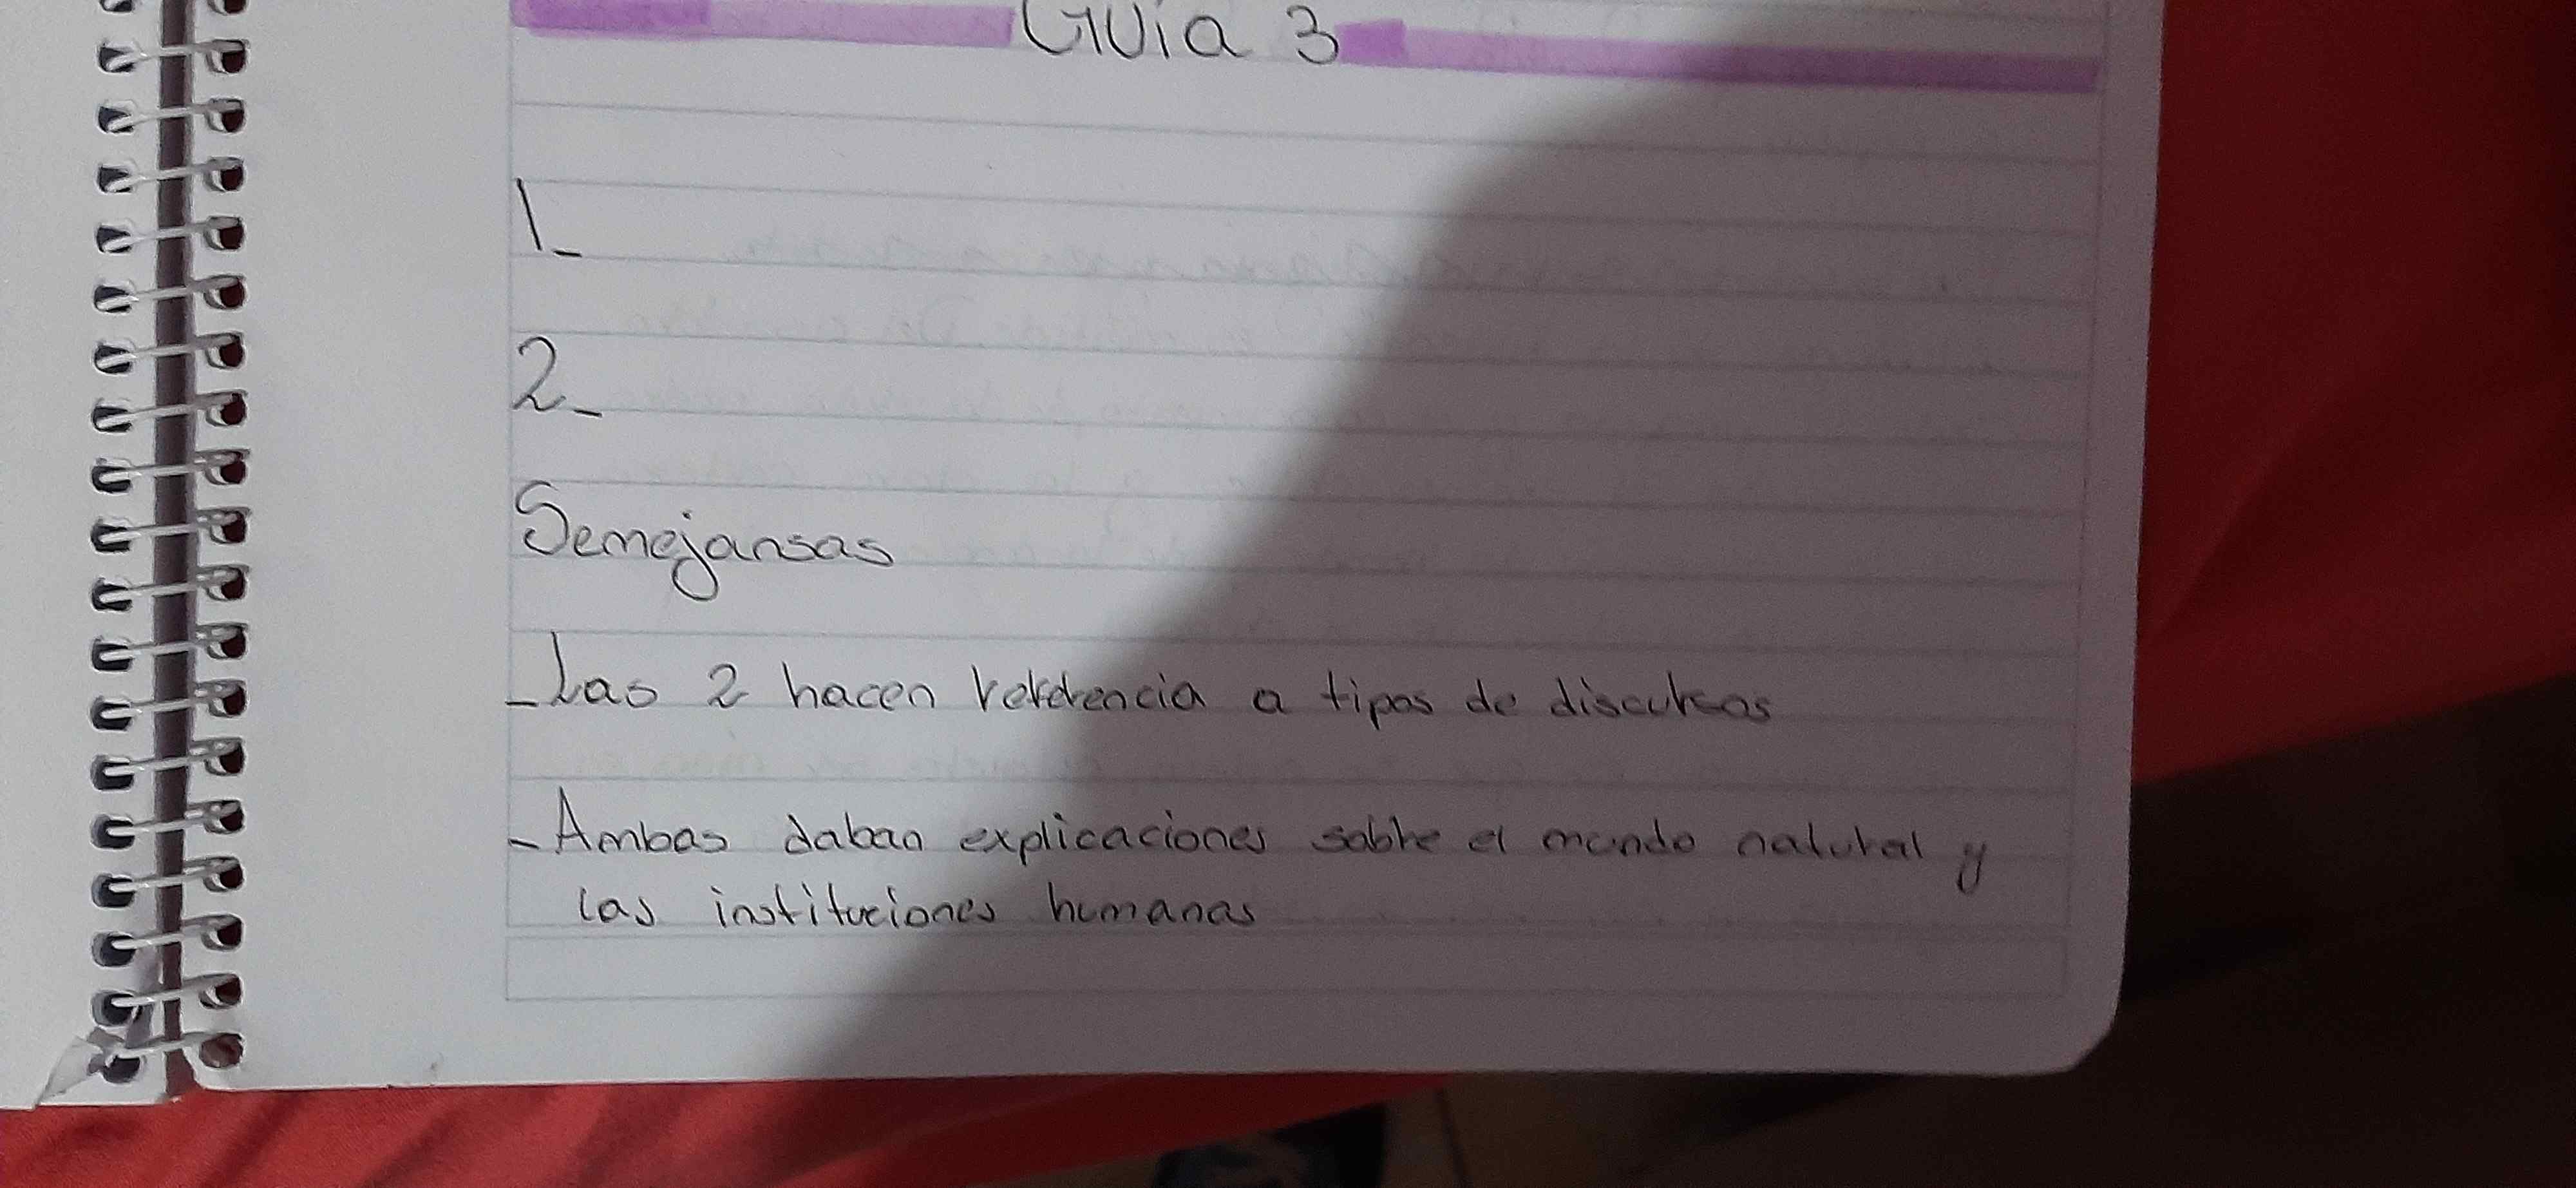 Guía 3
1_
2_
Semejansas
- Las 2 hacen referencia a tipos de discursos
- Ambas daban explicaciones sobre el mundo natural y
las instituciones humanas